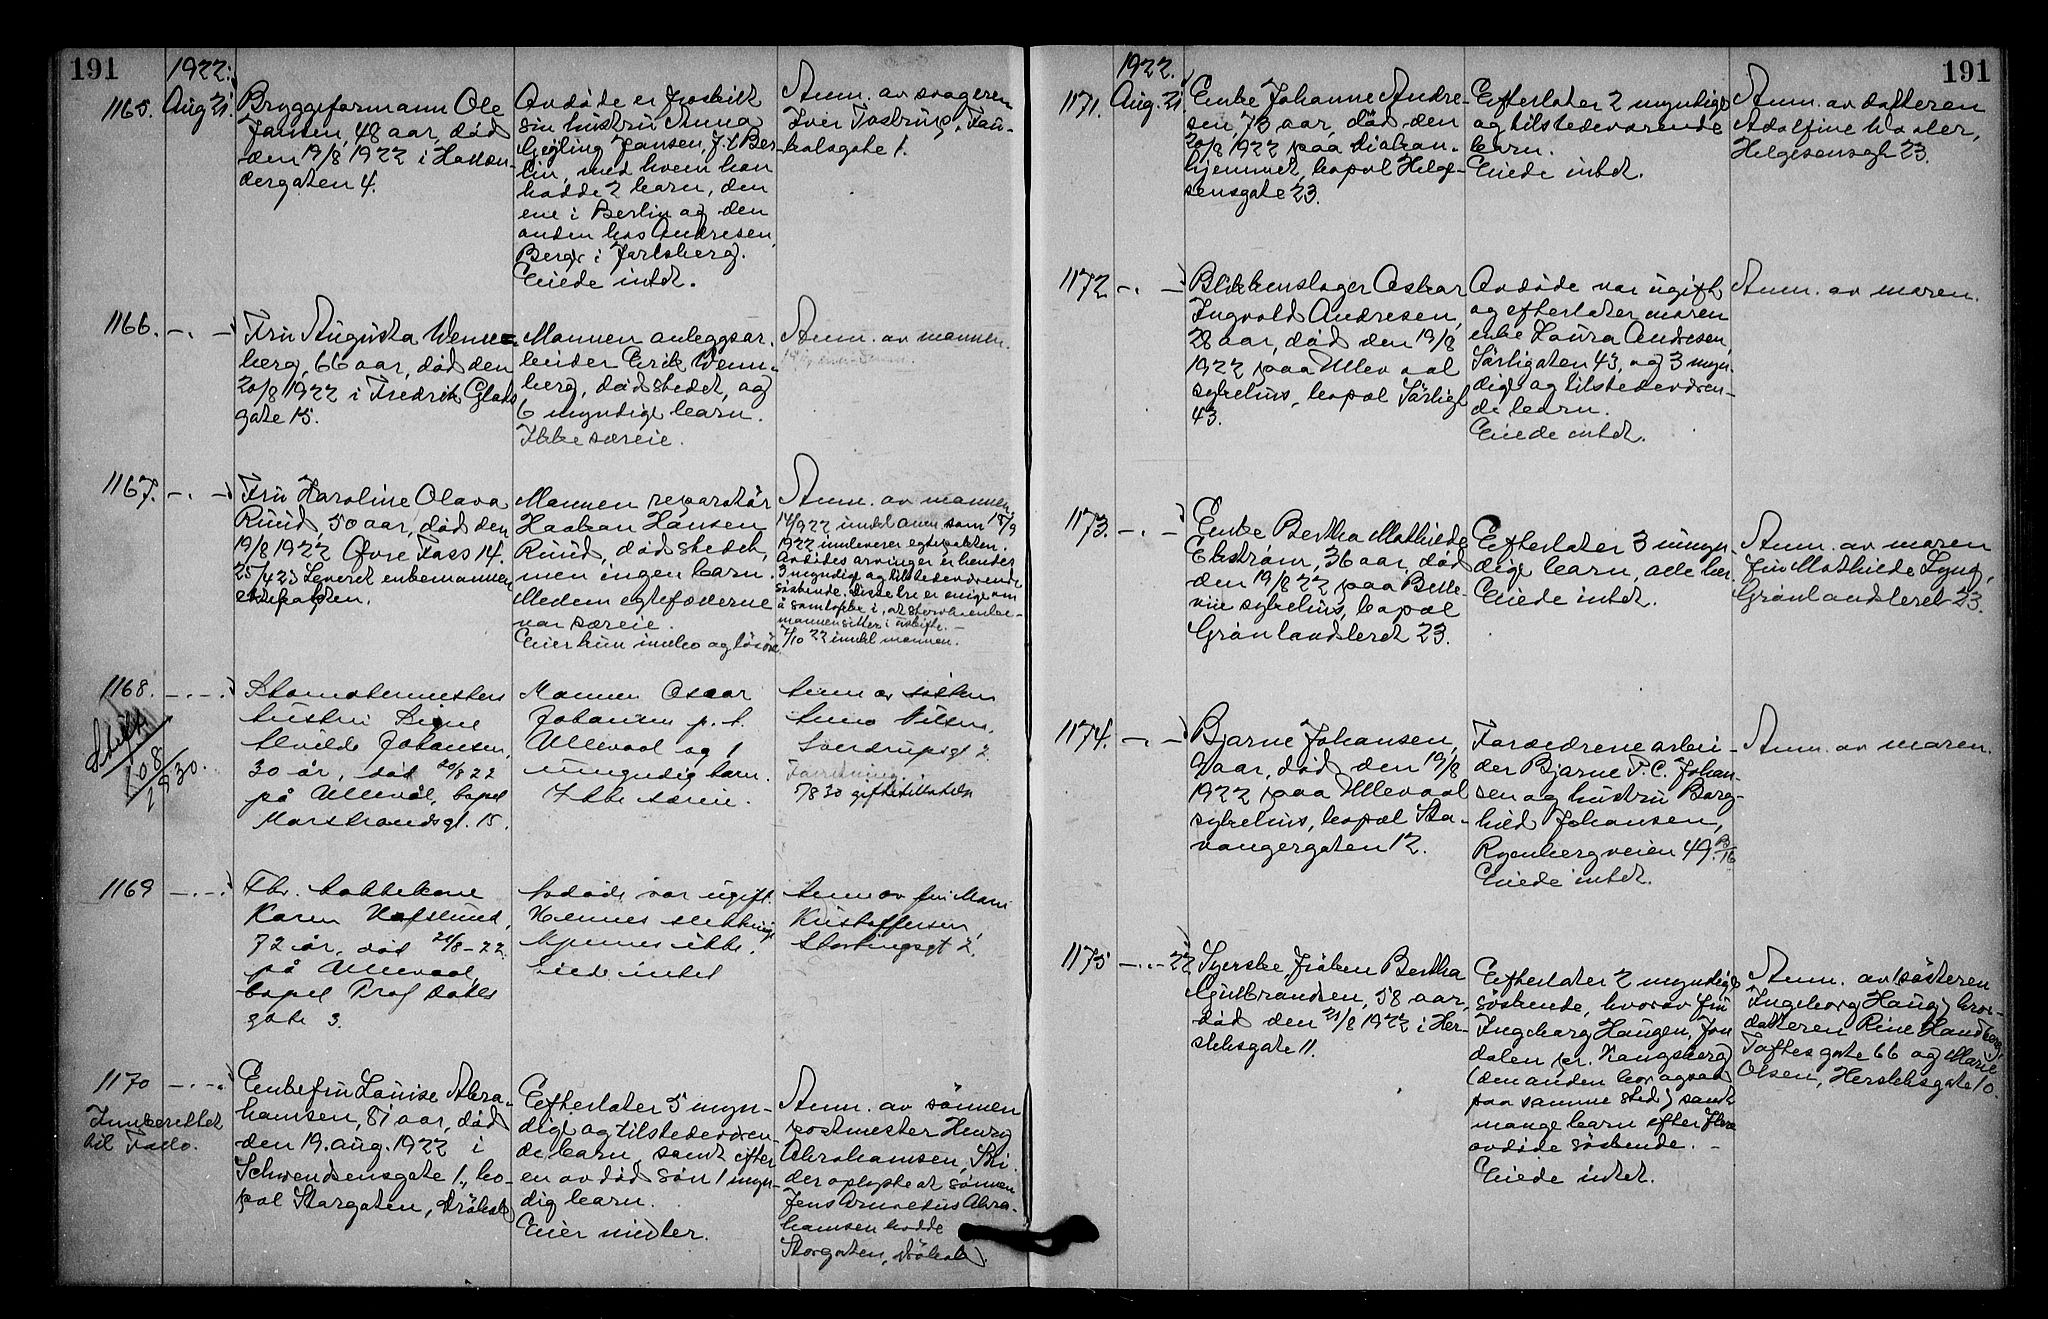 191
1922.
1165. Aug 21.
Bryggeformann Ole
Jansen, 48 aar, død
den 19/8 1922 i
dergaten 4.
Avdøde er fraskilt
sin hustru Anna
Jansen, f. t. Ber-
lin, med hvem han
hadde 2 barn, den
ene i Berlin og den
anden hos Andresen,
Berg i Jarlsberg.
Eiede intet.
Anm. av svogeren
Iver Tostrup,
gate 1.
1166. - . -
Fru Augusta Wenn-
berg, 66 aar, død den
20/8 1922 i Fredrik Glads
gate 15.
Mannen anleggsar-
beider Erik Wenn-
berg, dødsstedet, og
6 myndige barn.
Ikke særeie.
Anm. av mannen.
1167. - . -
Fru Karoline Olava
Ruud, 50 aar, død den
19/8 1922 Øvre Foss 14.
25/4 23 Leveret enkemannen
ektepakten.
Mannen reparatør
Haakon Hansen
Ruud, dødsstedet,
men ingen barn.
Mellem egtefællerne
var særeie.
Eier kun innbo og løsøre
Anm. av mannen,
14/9 22 innkl. som 18/9
1922 innleverer egtepakten.
Avdødes arvinger er hendes
3 myndige og tilstedeværende
søskende. Disse tre er enige om
å samtykke i, at enke-
mannen sitter i uskifte.
7/10 22 innkl mannen.
1168. - . -
Skifte
108
1930.
hustru Signe
Alvilde Johansen,
30 år, død 20/8 22
på Ullevål, bopel
Marstrandsgt. 15.
Mannen Oscar
Johansen p. t.
Ullevaal og 1
umyndig barn.
Ikke særeie.
Anm av søsteren
Anna Nilsen,
Sverdrupsgt 2.
7 8 30 giftetillatelse
1169 - . -
Fhv. kokkekone
Karen Hafslund,
72 år, død 20/8 - 22.
på Ullevaal,
bopel Prof Dahls
gate 3.
Avdøde var ugift.
Hennes slektninge
kjennes ikke.
Eiede intet
Anm av fru Marie
Kristoffersen,
Stortingsgt 2.
1170 - . -
Innberettet
til Follo.
Enkefru Louise Abra-
hamsen, 81 aar, død
den 19. aug. 1922 i
Schwensensgate 1, bo-
pæl Storgaten, Drøbak
Efterlater 5 myn-
dige og tilstedeværen-
de barn, samt efter
en av død søn 1 myn-
dig barn.
Eier midler.
Anm. av sønnen
postmester Henry
Abrahamsen, Ski
der oplyste at sønnen
Jens Arnoldus Abra-
hamsen bodde
Storgaten, Drøbak
1922.
191
1171. Aug. 21.
Enke Johanne Andre-
sen, 73 aar, død den
20/8 1922 paa diakon-
hjemmet, bopæl Helge-
sensgate 23.
Efterlater 2 myndige
og tilstedeværende
barn.
Eiede intet.
Anm. av datteren
Adolfine Waaler,
Helgesensgt 23.
1172 - . -
Blikkenslager Oskar
Ingvald Andresen,
28 aar, død den 19/8
1922 paa Ullevaal
sykehus, bopæl Sørligt
43.
Avdøde var ugift
og efterlater moren
enke Laura Andresen,
Sørligaten 43, og 3 myn-
dige og tilstedeværen-
de barn.
Eiede intet.
Anm. av moren.
1173. - . -
Enke Bertha Mathilde
Ekstrøm, 36 aar, død
den 19/8 22 paa Belle-
vue sykehus, bopæl
Grønlandsleret 23.
Efterlater 3 umyn-
dige barn, alle her.
Eiede intet.
Anm. av moren
fru Mathilde Lyng,
Grønlandsleret 23.
1174. - . -
Bjarne Johansen,
2 aar, død den 19/8
1922 paa Ullevaal
sykehus, bopæl Sta-
vangergaten 12.
Forældrene arbei-
der Bjarne T. C. Johan-
sen og hustru Borg-
hild Johansen,
Ryenbergveien 49. B/16
Eiede intet.
Anm. av moren.
1175 - . - 22
Syerske, frøken Bertha
Gulbrandsen, 58 aar,
død den 21/8 1922 i Her-
slebsgate 11.
Efterlater 2 myndige
søskende, hvorav fru
Ingeborg Haugen, Jon-
dalen pr. Kongsberg
(den anden bor ogsaa
paa samme sted) samt
mange barn efter flere
avdøde søskende.
Eiede intet.
Anm. av (søsteren
Ingeborg Haug) bror-
datteren Rine
Toftesgate 66 og Marie
Olsen, Herslebsgate 10.